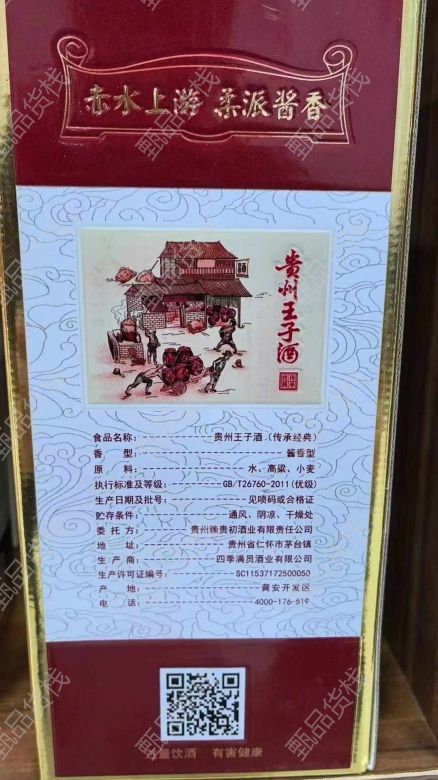 赤水上游 柔派酱香
贵州王子酒
食品名称：贵州王子酒（传承经典）
香型：酱香型
原料：水、高粱、小麦
执行标准及等级：GB/T26760-2011(优级)
生产日期及批号：见喷码或合格证
贮存条件：通风、阴凉、干燥处
委托方：贵州赖贵初酒业有限责任公司
地址：贵州省仁怀市茅台镇
生产商：四季满员酒业有限公司
生产许可证编号：SC11537172500050
产地：黄安开发区
电话：4000-176-519
量饮酒 有害健康
甄品货栈